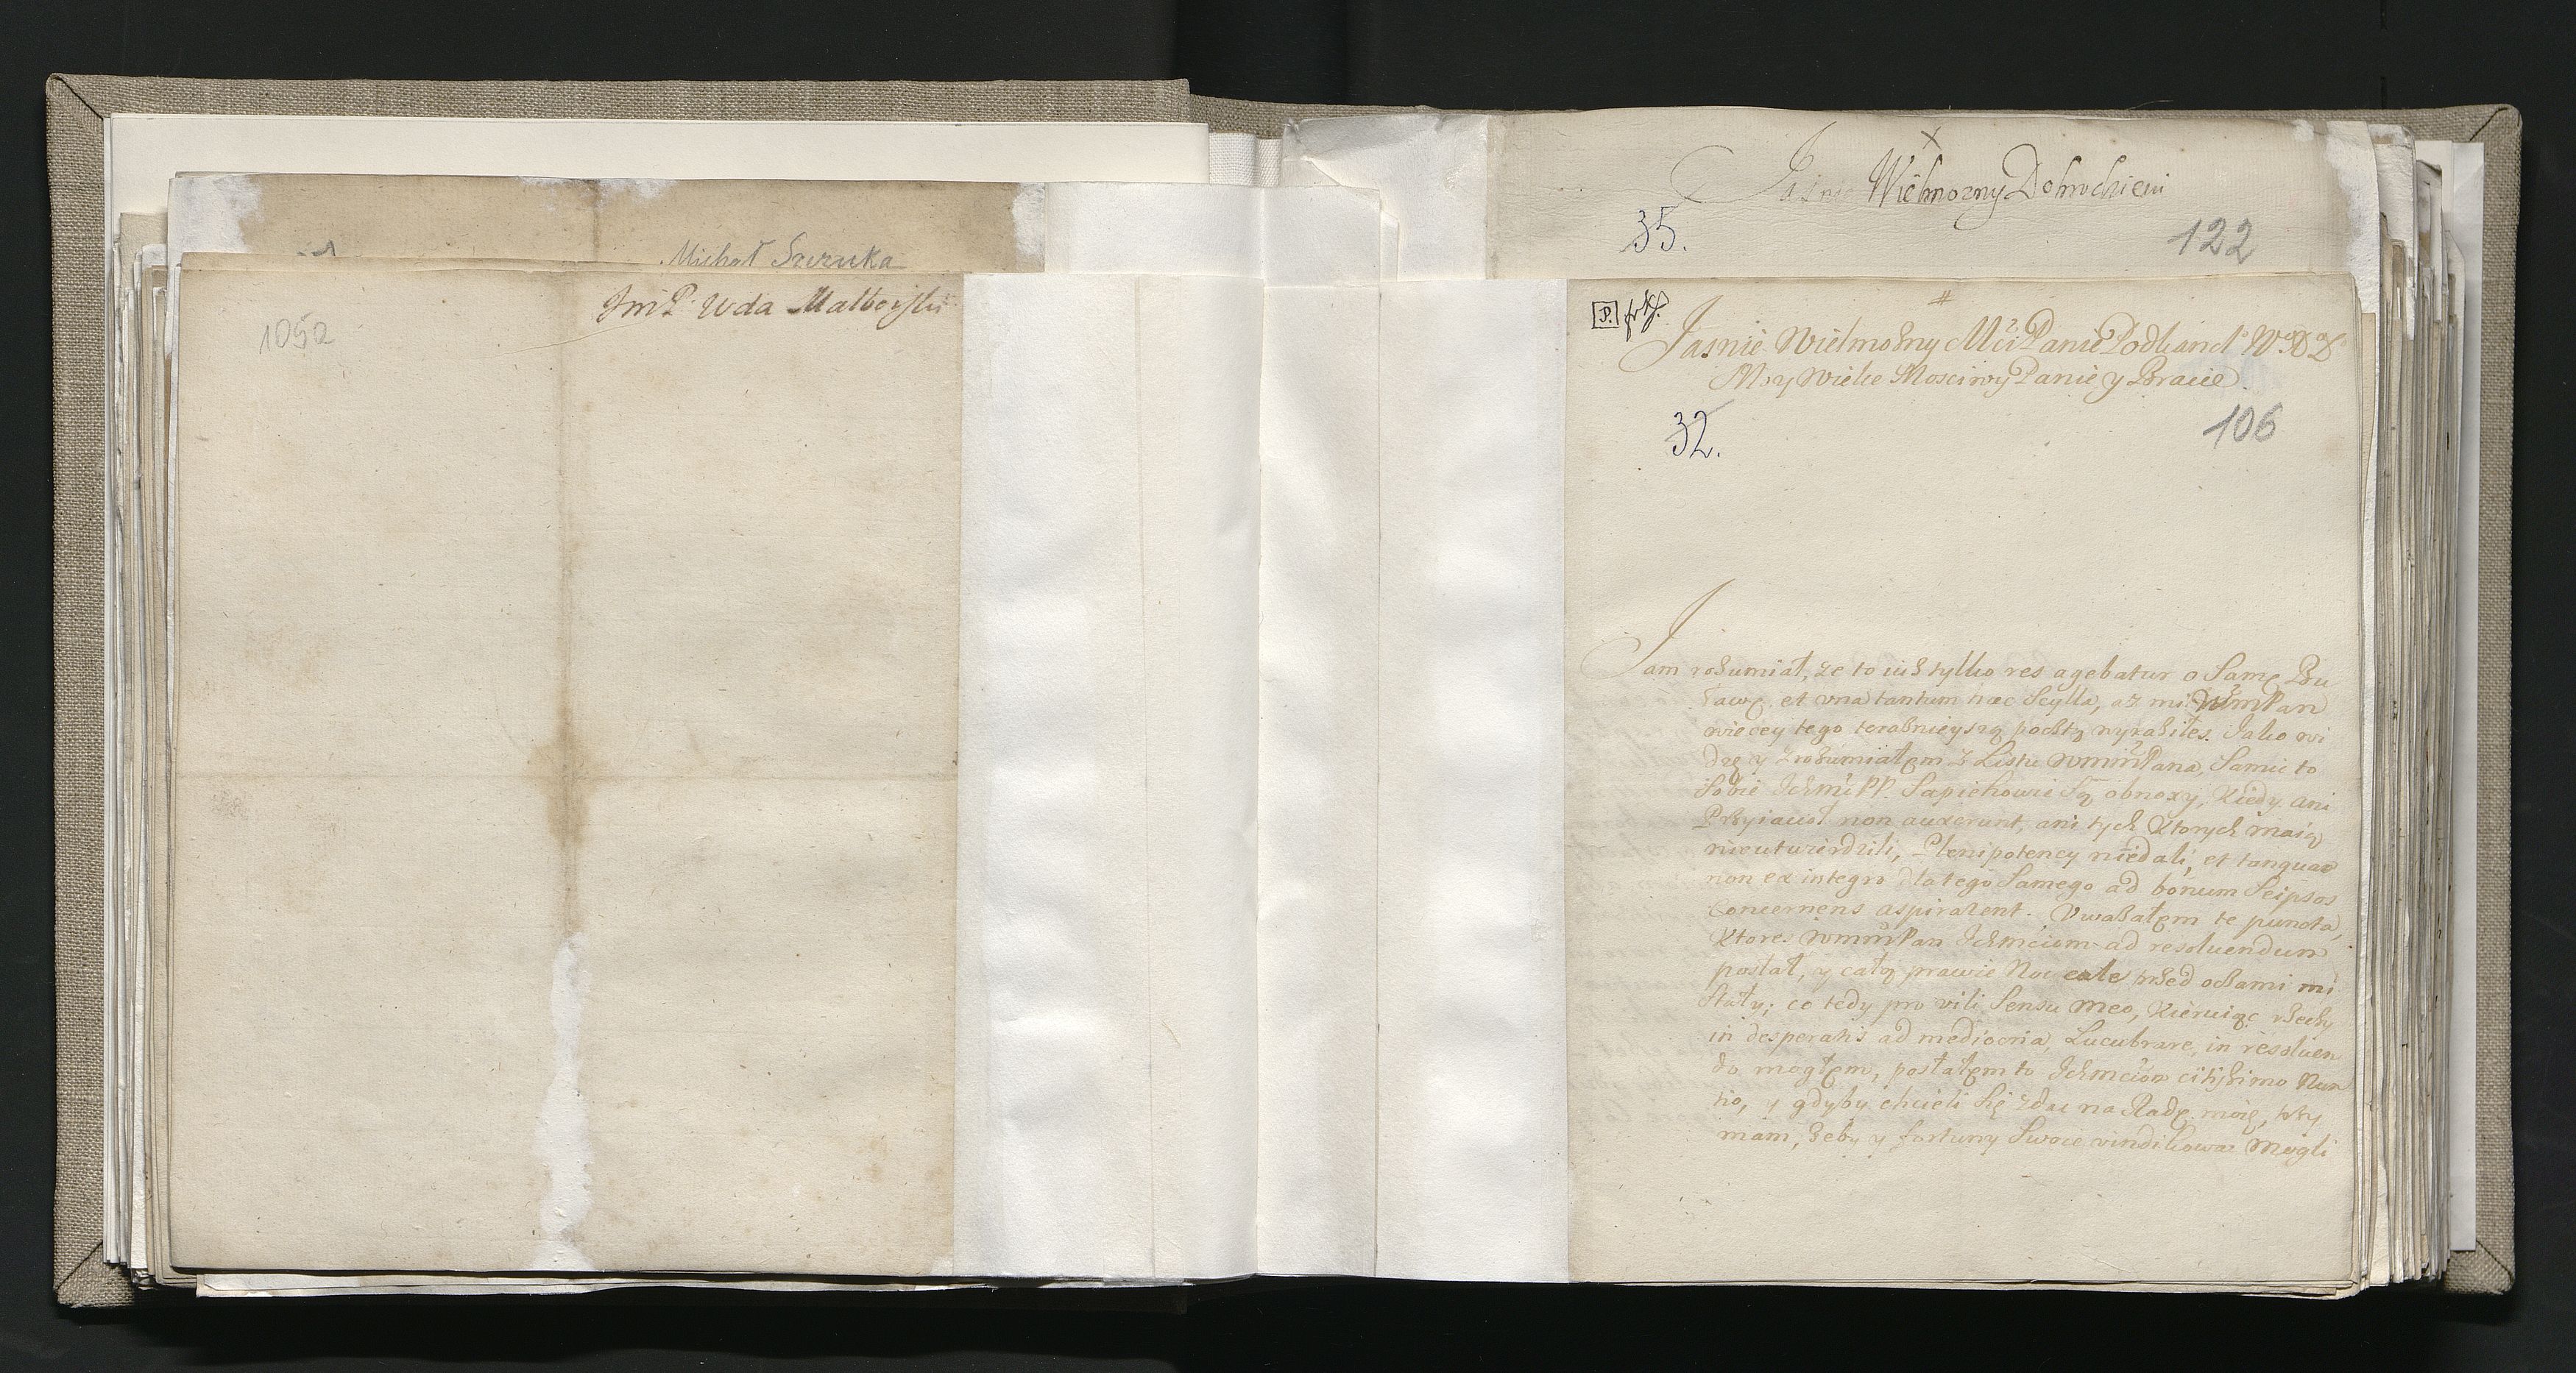 Michał Szczuka
JmP Wda Malborski
1052
X
Jaśnie Wielmozny Dobrodzieiu
35.
122
P.
#
Jasnie Wielmożny Mći Panie Podkancl: W X L
Moy Wielce Mosciwy Panie y Bracie
32.
106
Jam rozumiał, ze to iuż tylko res agebatur o Samę Bu
ławę, et vna tantum hæc Scylla, aż mi WMM Pan
więcey tego teraznieyszą pocztą wyraziłes. Jako wi
dzę y zrozumiałem z Listu WMM Pana, Sami to
Sobie Ichmć PP. Sapiehowie Są obnoxy, kiedy ani
Przyiaciół non auxerunt, ani tych ktorych maią
nieutwierdzili, Plenipotency niedali, et tanquam
non ex integro dla tego Samego ad bonum Seipsos
Concernens aspirarent. Uważałem te puncta,
Ktore WMM Pan Ichmciom ad resoluendum
posłał, y całą prawie Noc cale przed oczami mi
Stały; co tedy pro vili Sensu meo, Kieruiąc rzeczy
in desperatis ad mediocria, Lucubrare, in resoluen
do mogłem, posłałem to Ichmciom citissimo Nun
tio, y gdyby chcieli Się zdać na Radę moię, trzy
mam, żeby y fortuny Swoie vindikować mogli